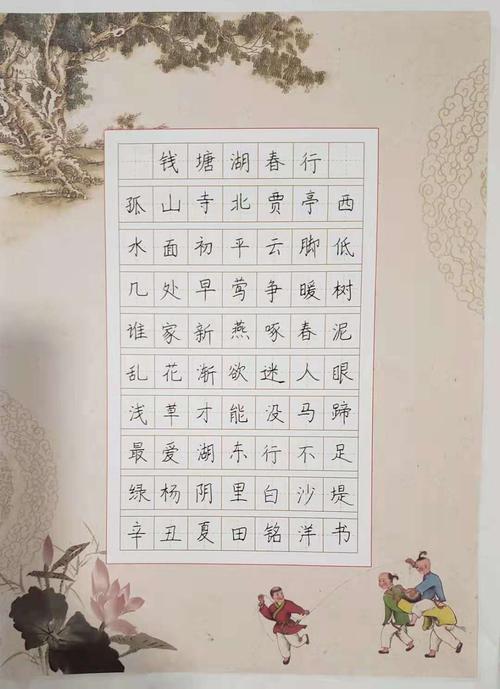 钱塘湖春行
孤山寺北贾亭西
水面初平云脚低
几处早莺争暖树
谁家新燕啄春泥
乱花渐欲迷人眼
浅草才能没马蹄
最爱湖东行不足
绿杨阴里白沙堤
辛丑夏田铭洋书